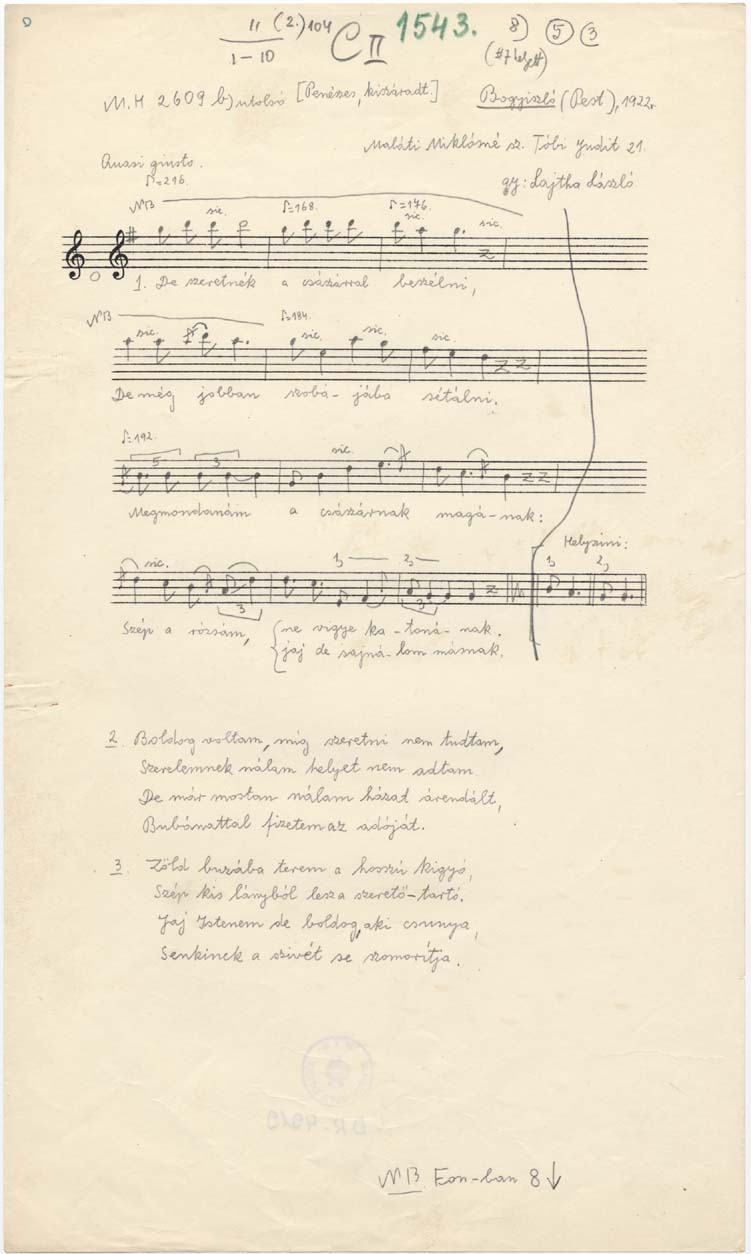 11 (2.) 104
1-10
C II
1543.
8) 5 3
(#7 helyett)
M.H 2609 b) utolsó [Penészes, kiszáradt.] Bogyiszló (Pest), 1922.
Maláti Miklósné sz. Tóbi Judit 21.
Quasi giusto.
♪=216.
gy: Lajtha László
NB sic. ♪=168. ♪=176. sic. sic.
1. De szeretnék a császárral beszélni,
NB sic. ♪=184. sic. sic. sic.
De még jobban szobá-jába sétálni.
♪=192.
5 3 sic.
Megmondanám a császárnak magá-nak:
Helyszini:
sic. 1, 2, 1, 2,
3 3
Szép a rózsám, ne vigye ka-toná-nak.
jaj de sajná-lom másnak.
2. Boldog voltam, míg szeretni nem tudtam,
Szerelemnek nálam helyet nem adtam
De már mostan nálam házat árendált,
Bubánattal fizetem az adóját.
3 Zöld buzába terem a hosszú kigyó,
Szép kis lányból lesz a szerető-tartó.
Jaj Istenem de boldog, aki csunya,
Senkinek a szivét se szomorítja.
NB. Fon-ban 8 ↓